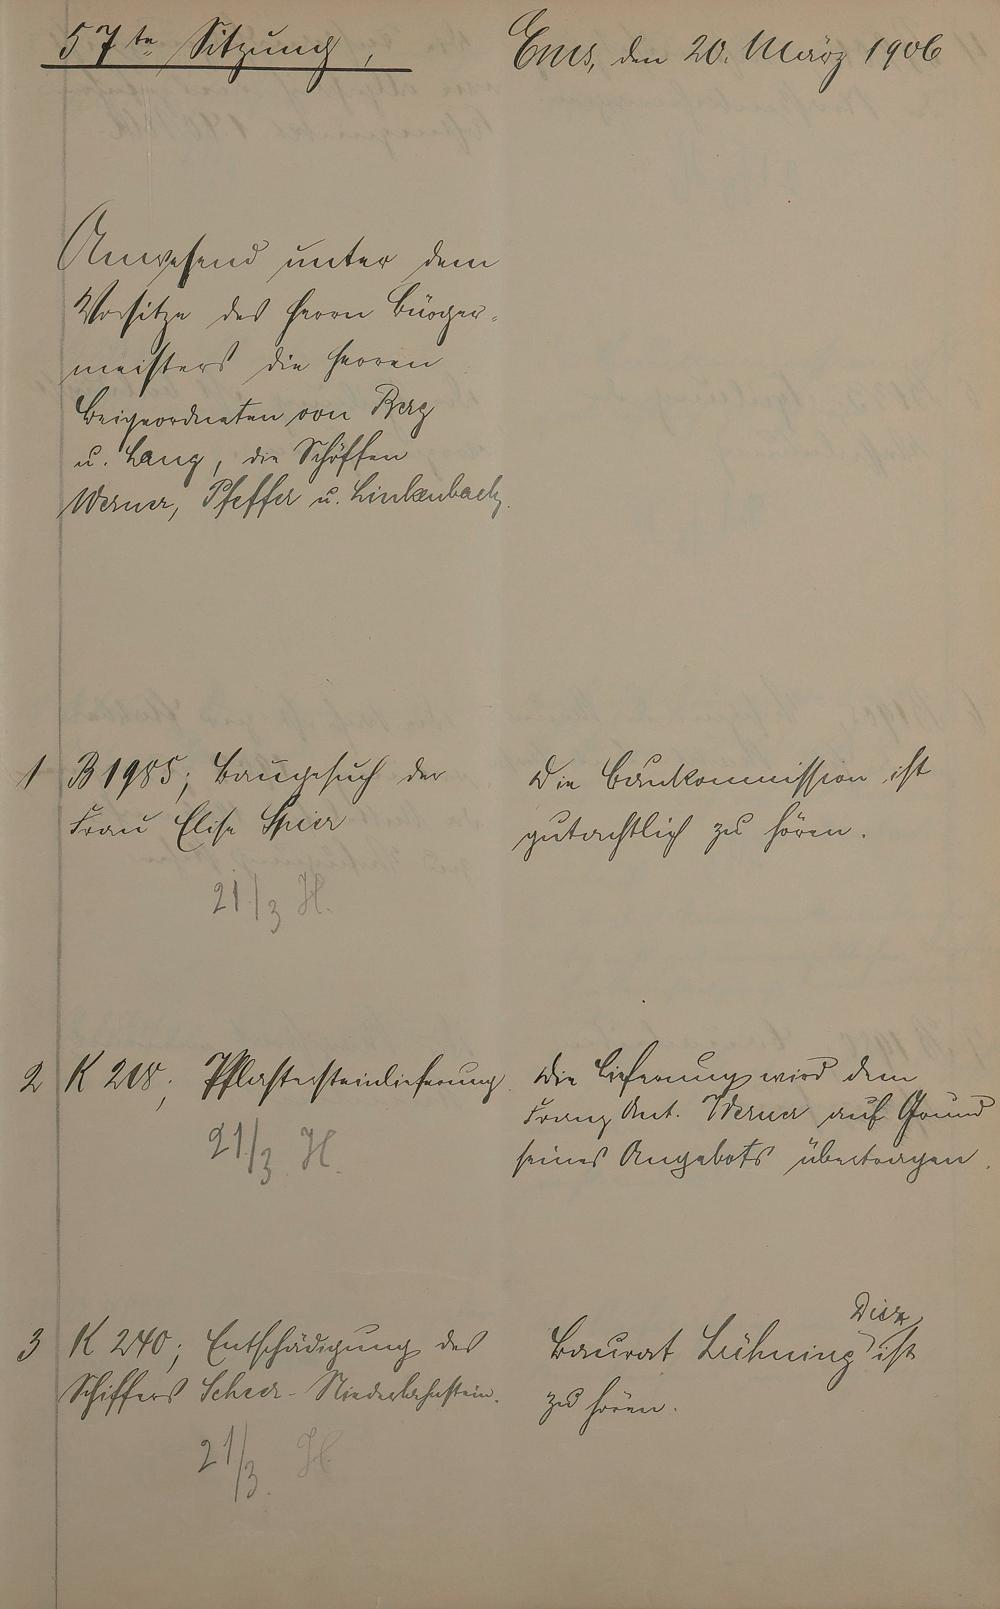 57te Sitzung,
Ems, den 20. März 1906
Anwesend unter dem
Vorsitze des Herrn Bürger-
meisters die Herren
Beigeordneten von Berg
u. Lang, die Schöffen
Werner, Pfeffer u. Linkenbach.
1 B 1985; Baugesuch der
Frau Elise Spier
21/3 H.
Die Baukommission ist
gutachtlich zu hören.
2 K 218; Pflastersteinlieferung
21/3 H.
Die Lieferung wird dem
Franz Ant. Werner auf Grund
seines Angebots übertragen.
3 K 240; Entschädigung des
Schiffers Scheer-Niederlahnstein.
21/3. H.
Diez
Baurat Lühning ist
zu hören.